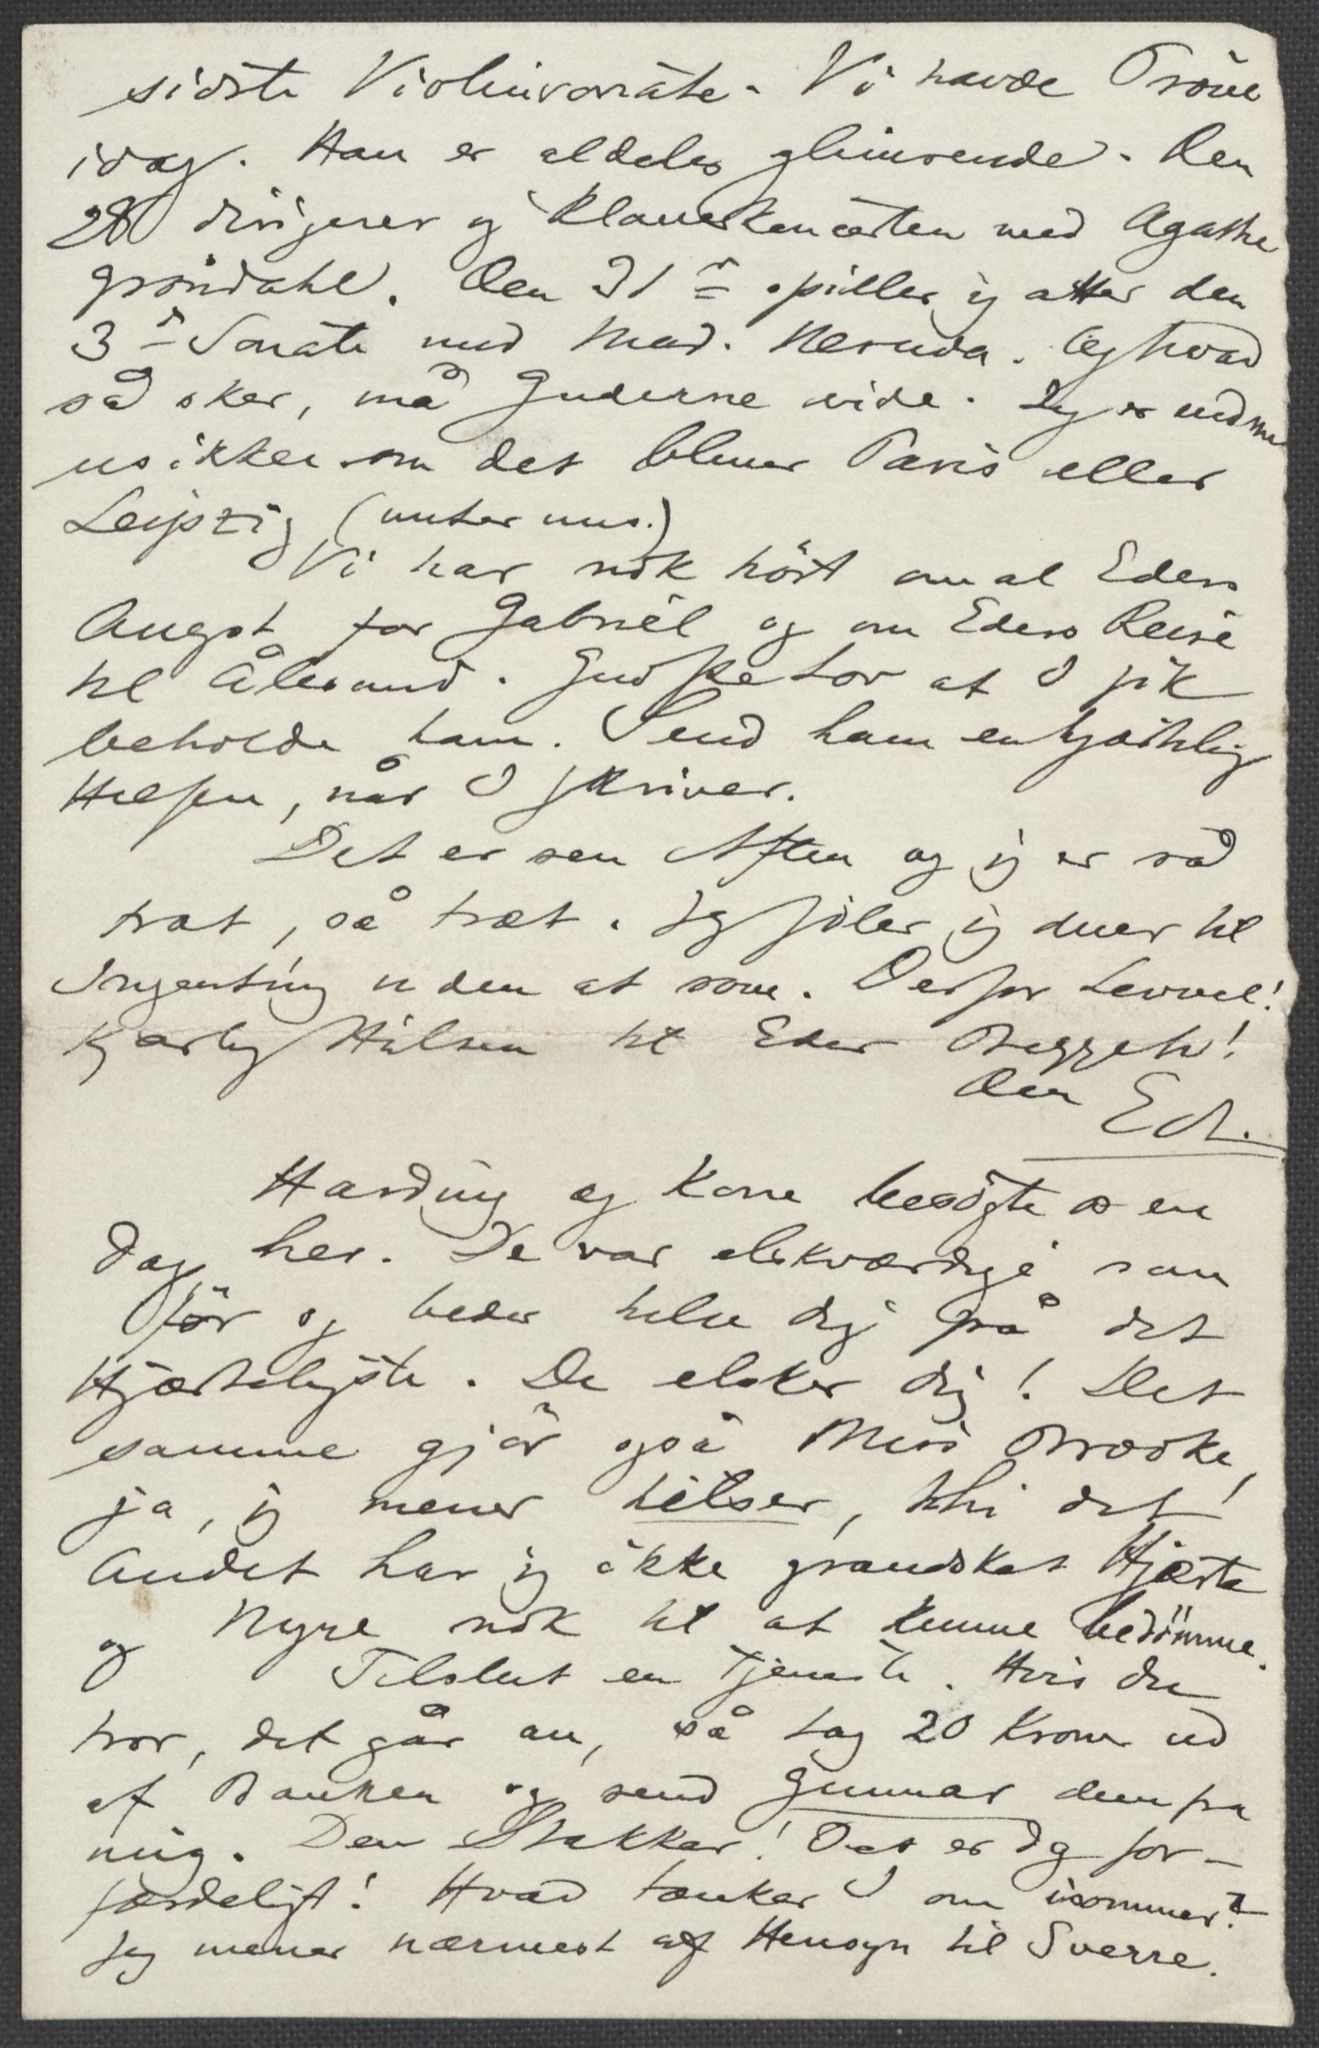 sidste Violinsonate. Vi havde Pröve
idag. Han er aldeles glimrende. Den
28 dirigerer jeg Klaverkoncerten med Agathe
Gröndahl. Den 31te spiller jeg atter den
3die Sonate med Mad. Neruda. Og hvad
så sker, må Guderne vide. Jeg er endnu
usikker om det bliver Paris eller
Leipzig (unter uns.)
Vi har nok hört om al Eders
Angst for Gabriël og om Eders Reise
til Ålesund. Gud ske Lov at I fik
beholde ham. Send ham en hjærtelig
Hilsen, når I skriver.
Det er sen Aften og jeg er så
træt, så træt. Jeg föler jeg duer til
Ingenting uden at sove. Derfor Levvel!
Kjærlig Hilsen til Eder Beggeto!
Din Ed.
Harding og Kone besögte os en
Dag her. De var elskværdige som
för og beder hilse dig på det
Hjærteligste. De elsker dig! Det
samme gjör også Miss Brooke,
ja, jeg mener hilser, thi det
Andet har jeg ikke grandsket Hjærte
og Nyre nok til at kunne bedömme.
Tilslut en Tjeneste. Hvis du
tror, det går an, så tag 20 Kroner ud
af Banken og send Gunnar dem fra
mig. Den Stakkar! Det er dog for-
færdeligt! Hvad tænker I om isommer?
Jeg mener nærmest af Hensyn til Sverre.